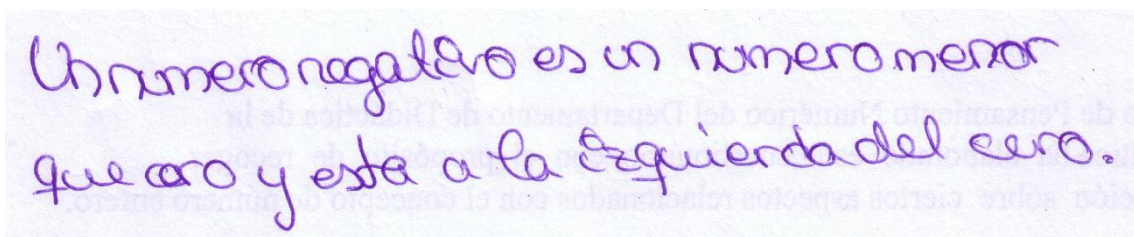 Un numero negativo es un numero menor
que cero y esta a la izquierda del cero.
de Pensamiento Numérico del Departamento de Didáctica de la
propósito de recoger
ción sobre ciertos aspectos relacionados con el concepto de número entero.